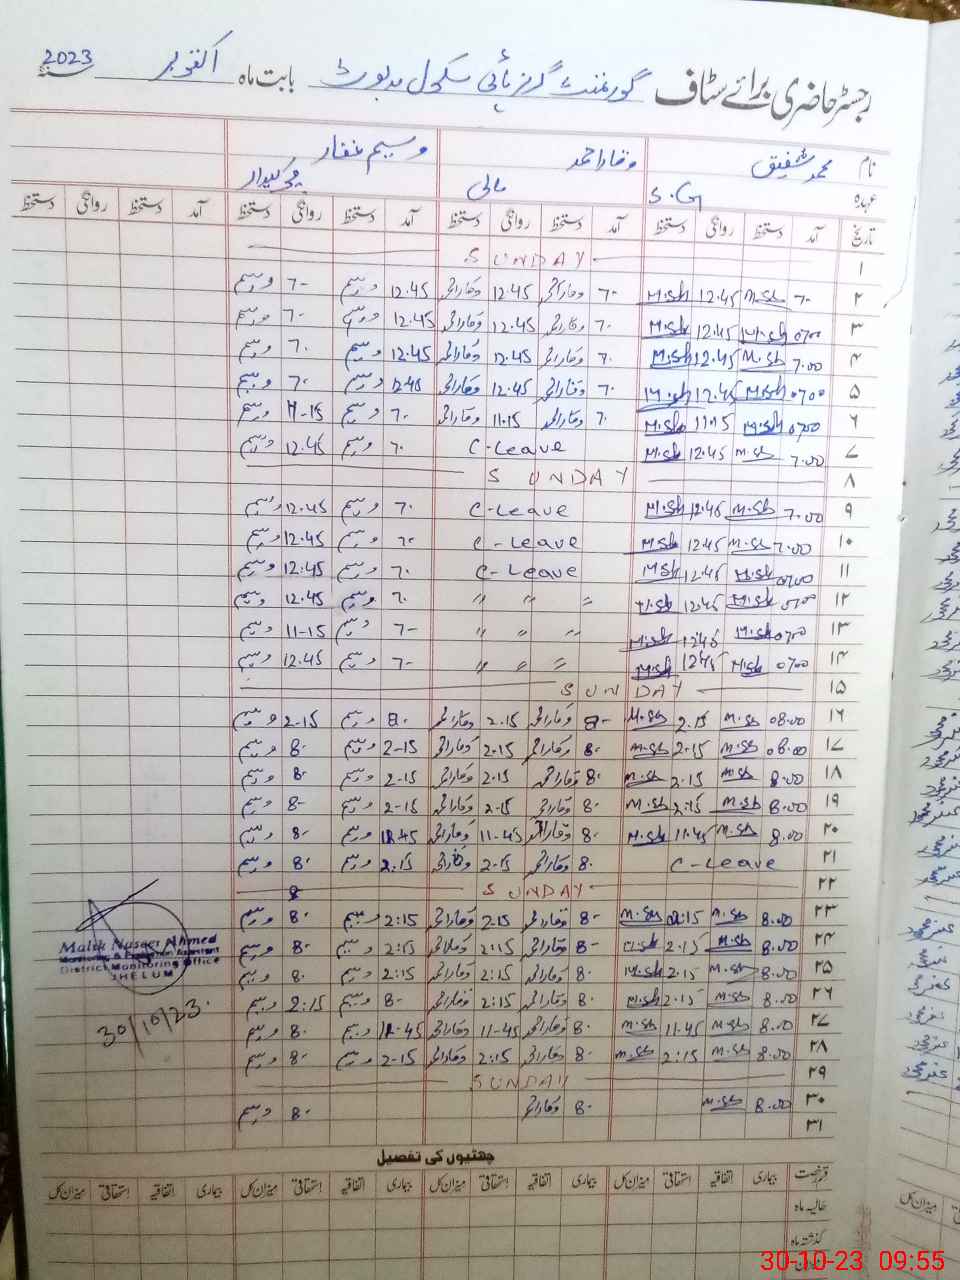 رجسٹر حاضری برائے سٹاف گورنمنٹ گرلز ہائی سکول بابت ماہ اکتوبر سنہ 2023
نام محمد شفیق وقار احمد وسیم غفار
عہدہ S.G مالی چوکیدار
تاریخ آمد دستخط روانگی دستخط آمد دستخط روانگی دستخط آمد دستخط روانگی دستخط آمد دستخط روانگی دستخط
۱ SUNDAY
۲ 7- M.Sh 12.45 M.Sh 7- وقار احمد 12.45 وقار احمد 12.45 وسیم 7- وسیم
۳ 0700 M.Sh 12.45 M.Sh 7. وقار احمد 12.45 وقار احمد 12.45 وسیم 7. وسیم
۴ 7.00 M.Sh 12.45 M.Sh 7. وقار احمد 12.45 وقار احمد 12.45 وسیم 7. وسیم
۵ 0700 M.Sh 12.45 M.Sh 7. وقار احمد 12.45 وقار احمد 12.45 وسیم 7. وسیم
۶ 0700 M.Sh 11.15 M.Sh 7. وقار احمد 11.15 وقار احمد 7. وسیم 11-15 وسیم
۷ 7.00 M.Sh 12.45 M.Sh C-Leave 7. وسیم 12.45 وسیم
۸ SUNDAY
۹ 7.00 M.Sh 12.45 M.Sh C-Leave 7. وسیم 12.45 وسیم
۱۰ 7.00 M.Sh 12.45 M.Sh C-Leave 7. وسیم 12.45 وسیم
۱۱ 0700 M.Sh 12.45 M.Sh C-Leave 7. وسیم 12.45 وسیم
۱۲ 0700 M.Sh 12.45 M.Sh " " " 7. وسیم 12.45 وسیم
۱۳ 0700 M.Sh 12.45 M.Sh " " " 7- وسیم 11-15 وسیم
۱۴ 0700 M.Sh 12.45 M.Sh " " " 7- وسیم 12.45 وسیم
۱۵ SUNDAY
۱۶ 08.00 M.Sh 2.15 M.Sh 8- وقار احمد 2.15 وقار احمد 8. وسیم 2-15 وسیم
۱۷ 08.00 M.Sh 2.15 M.Sh 8. وقار احمد 2.15 وقار احمد 2-15 وسیم 8. وسیم
۱۸ 8.00 M.Sh 2.15 M.Sh 8. وقار احمد 2.15 وقار احمد 2-15 وسیم 8. وسیم
۱۹ 8.00 M.Sh 2.15 M.Sh 8. وقار احمد 2-15 وقار احمد 2-15 وسیم 8- وسیم
۲۰ 8.00 M.Sh 11.45 M.Sh 8. وقار احمد 11-45 وقار احمد 11.45 وسیم 8- وسیم
۲۱ C-Leave 8. وقار احمد 2.15 وقار احمد 2.15 وسیم 8. وسیم
۲۲ SUNDAY
۲۳ 8.00 M.Sh 2:15 M.Sh 8- وقار احمد 2.15 وقار احمد 2:15 وسیم 8. وسیم
۲۴ 8.00 M.Sh 2.15 M.Sh 8- وقار احمد 2:15 وقار احمد 2:15 وسیم 8. وسیم
۲۵ 8.00 M.Sh 2.15 M.Sh 8. وقار احمد 2:15 وقار احمد 2:15 وسیم 8. وسیم
۲۶ 8.00 M.Sh 2.15 M.Sh 8. وقار احمد 2:15 وقار احمد 8- وسیم 2:15 وسیم
۲۷ 8.00 M.Sh 11.45 M.Sh 8. وقار احمد 11-45 وقار احمد 11-45 وسیم 8. وسیم
۲۸ 8.00 M.Sh 2:15 M.Sh 8. وقار احمد 2:15 وقار احمد 2-15 وسیم 8. وسیم
۲۹ SUNDAY
۳۰ 8.00 M.Sh 8. وقار احمد 8. وسیم
۳۱
Malik Naseer Ahmed
Monitoring & Evaluation Assistant
District Monitoring Office
JHELUM
30/10/23.
چھٹیوں کی تفصیل
قسم رخصت بیماری اتفاقیہ استحقاقی میزان کل بیماری اتفاقیہ استحقاقی میزان کل بیماری اتفاقیہ استحقاقی میزان کل بیماری اتفاقیہ استحقاقی میزان کل
حالیہ ماہ
گذشتہ ماہ
30-10-23 09:55